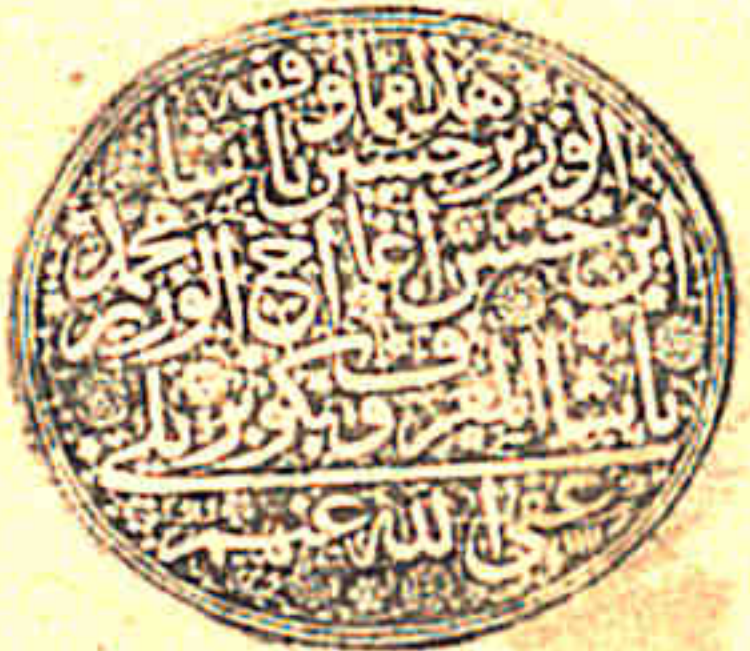 هذا مما وقفه
الوزير حسين باشا
ابن حسن اغا اخ الوزير محمد
باشا المعروف بكوبريلى
عفى الله عنهم